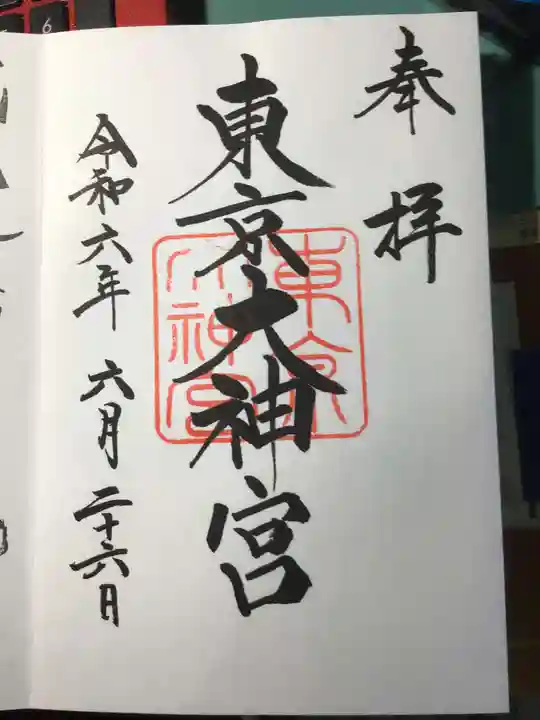 奉拝
東京大神宮
令和六年 六月二十六日
東京大神宮
6